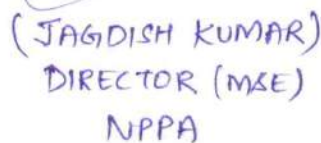 (JAGDISH KUMAR)
DIRECTOR (M&E)
NPPA